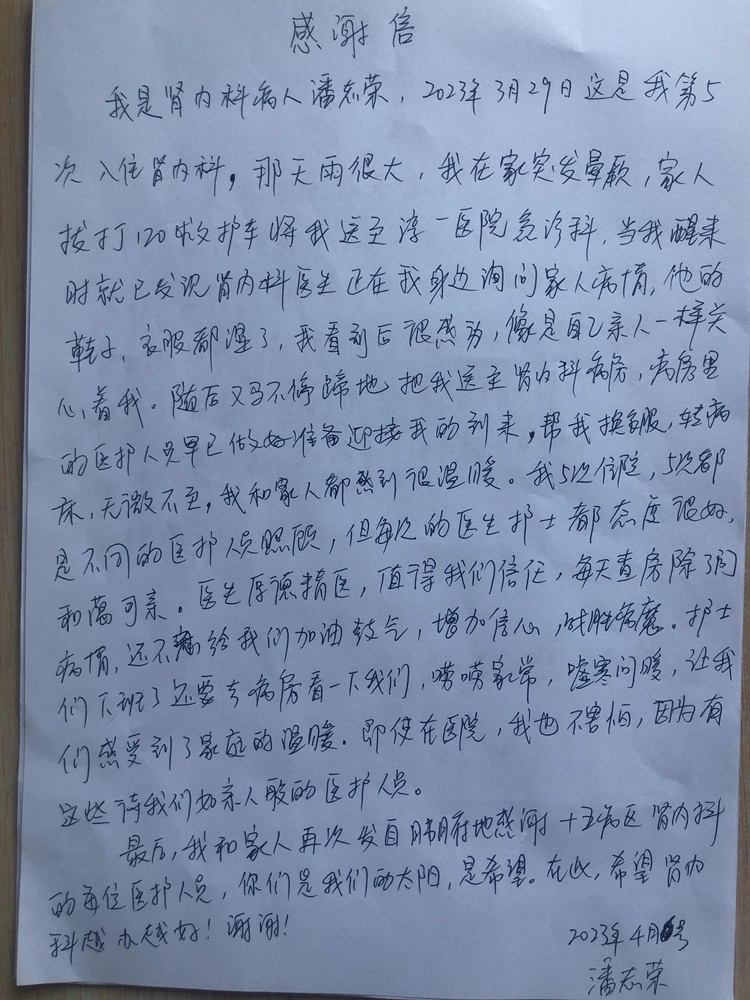 感谢信
我是肾内科病人潘志荣，2023年3月29日这是我第5
次入住肾内科。那天雨很大，我在家突发晕厥，家人
拔打120救护车将我送至淳一医院急诊科，当我醒来
时就已发现肾内科医生正在我身边询问家人病情，他的
鞋子、衣服都湿了，我看到后很感动，像是自己亲人一样关
心着我。随后又马不停蹄地把我送至肾内科病房，病房里
的医护人员早已做好准备迎接我的到来，帮我换衣服，转病
床，无微不至，我和家人都感到很温暖。我5次住院，5次都
是不同的医护人员照顾，但每次的医生护士都态度很好，
和蔼可亲。医生厚德精医，值得我们信任，每天查房除了问
病情，还不忘给我们加油鼓气，增加信心，战胜病魔。护士
们下班了还要去病房看一下我们，唠唠家常，嘘寒问暖，让我
们感受到了家庭的温暖。即使在医院，我也不害怕，因为有
这些待我们如亲人般的医护人员。
最后，我和家人再次发自肺腑地感谢十五病区肾内科
的每位医护人员，你们是我们的太阳，是希望。在此，希望肾内
科越办越好！谢谢！
2023年4月号
潘志荣